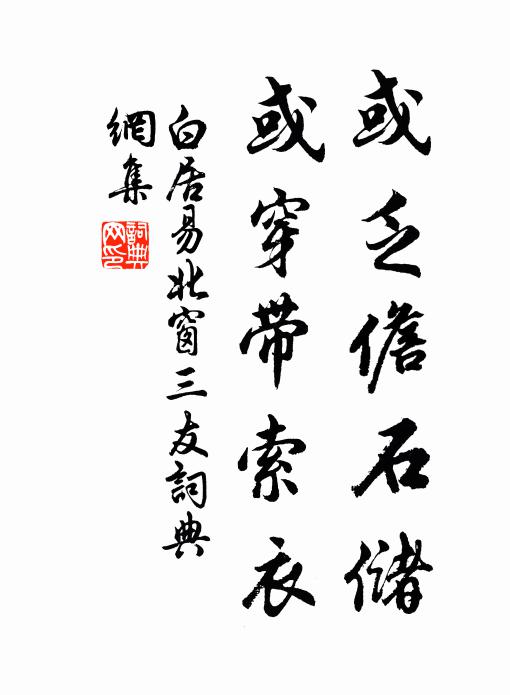 或乏儋石儲
或穿帶索衣
白居易北窗三友詞典
網集
詞典网印